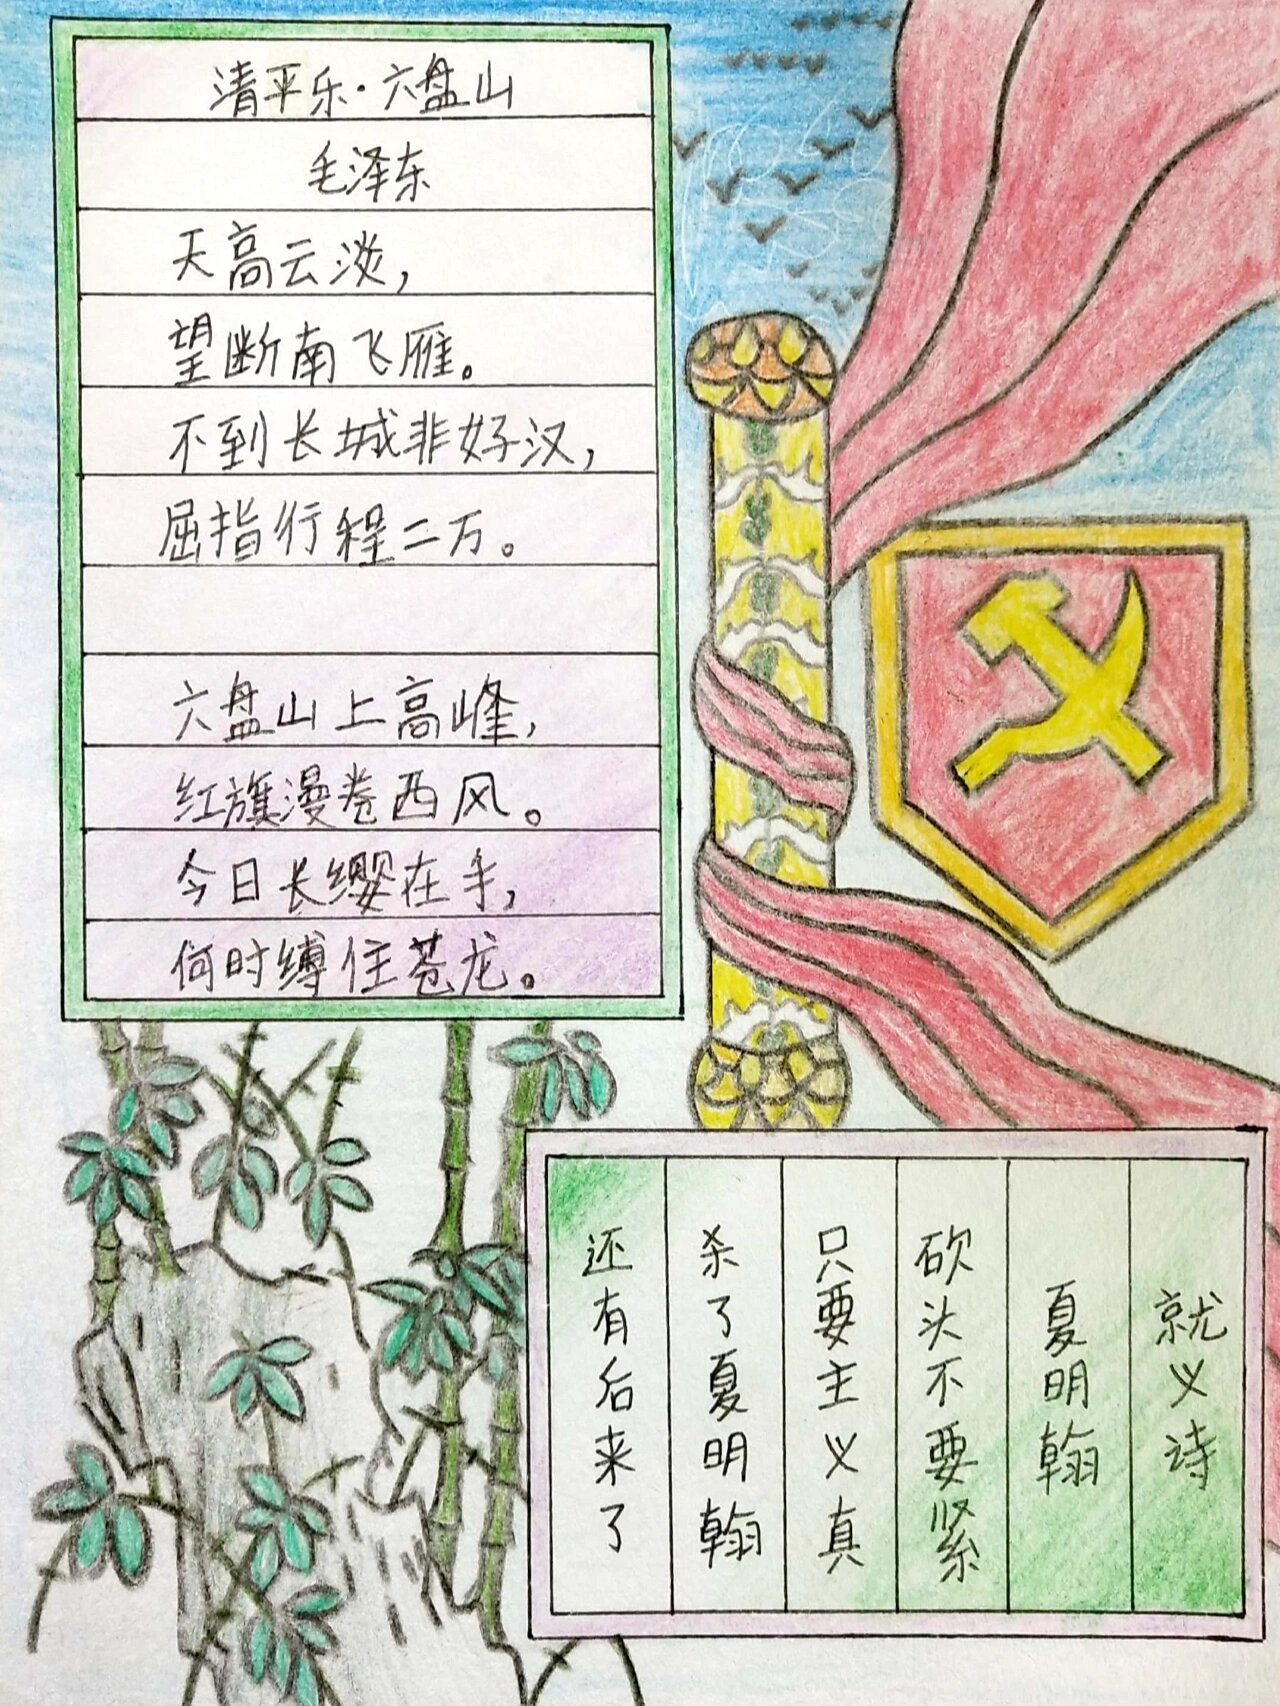 清平乐·六盘山
毛泽东
天高云淡，
望断南飞雁。
不到长城非好汉，
屈指行程二万。
六盘山上高峰，
红旗漫卷西风。
今日长缨在手，
何时缚住苍龙。
就义诗
夏明翰
砍头不要紧
只要主义真
杀了夏明翰
还有后来了